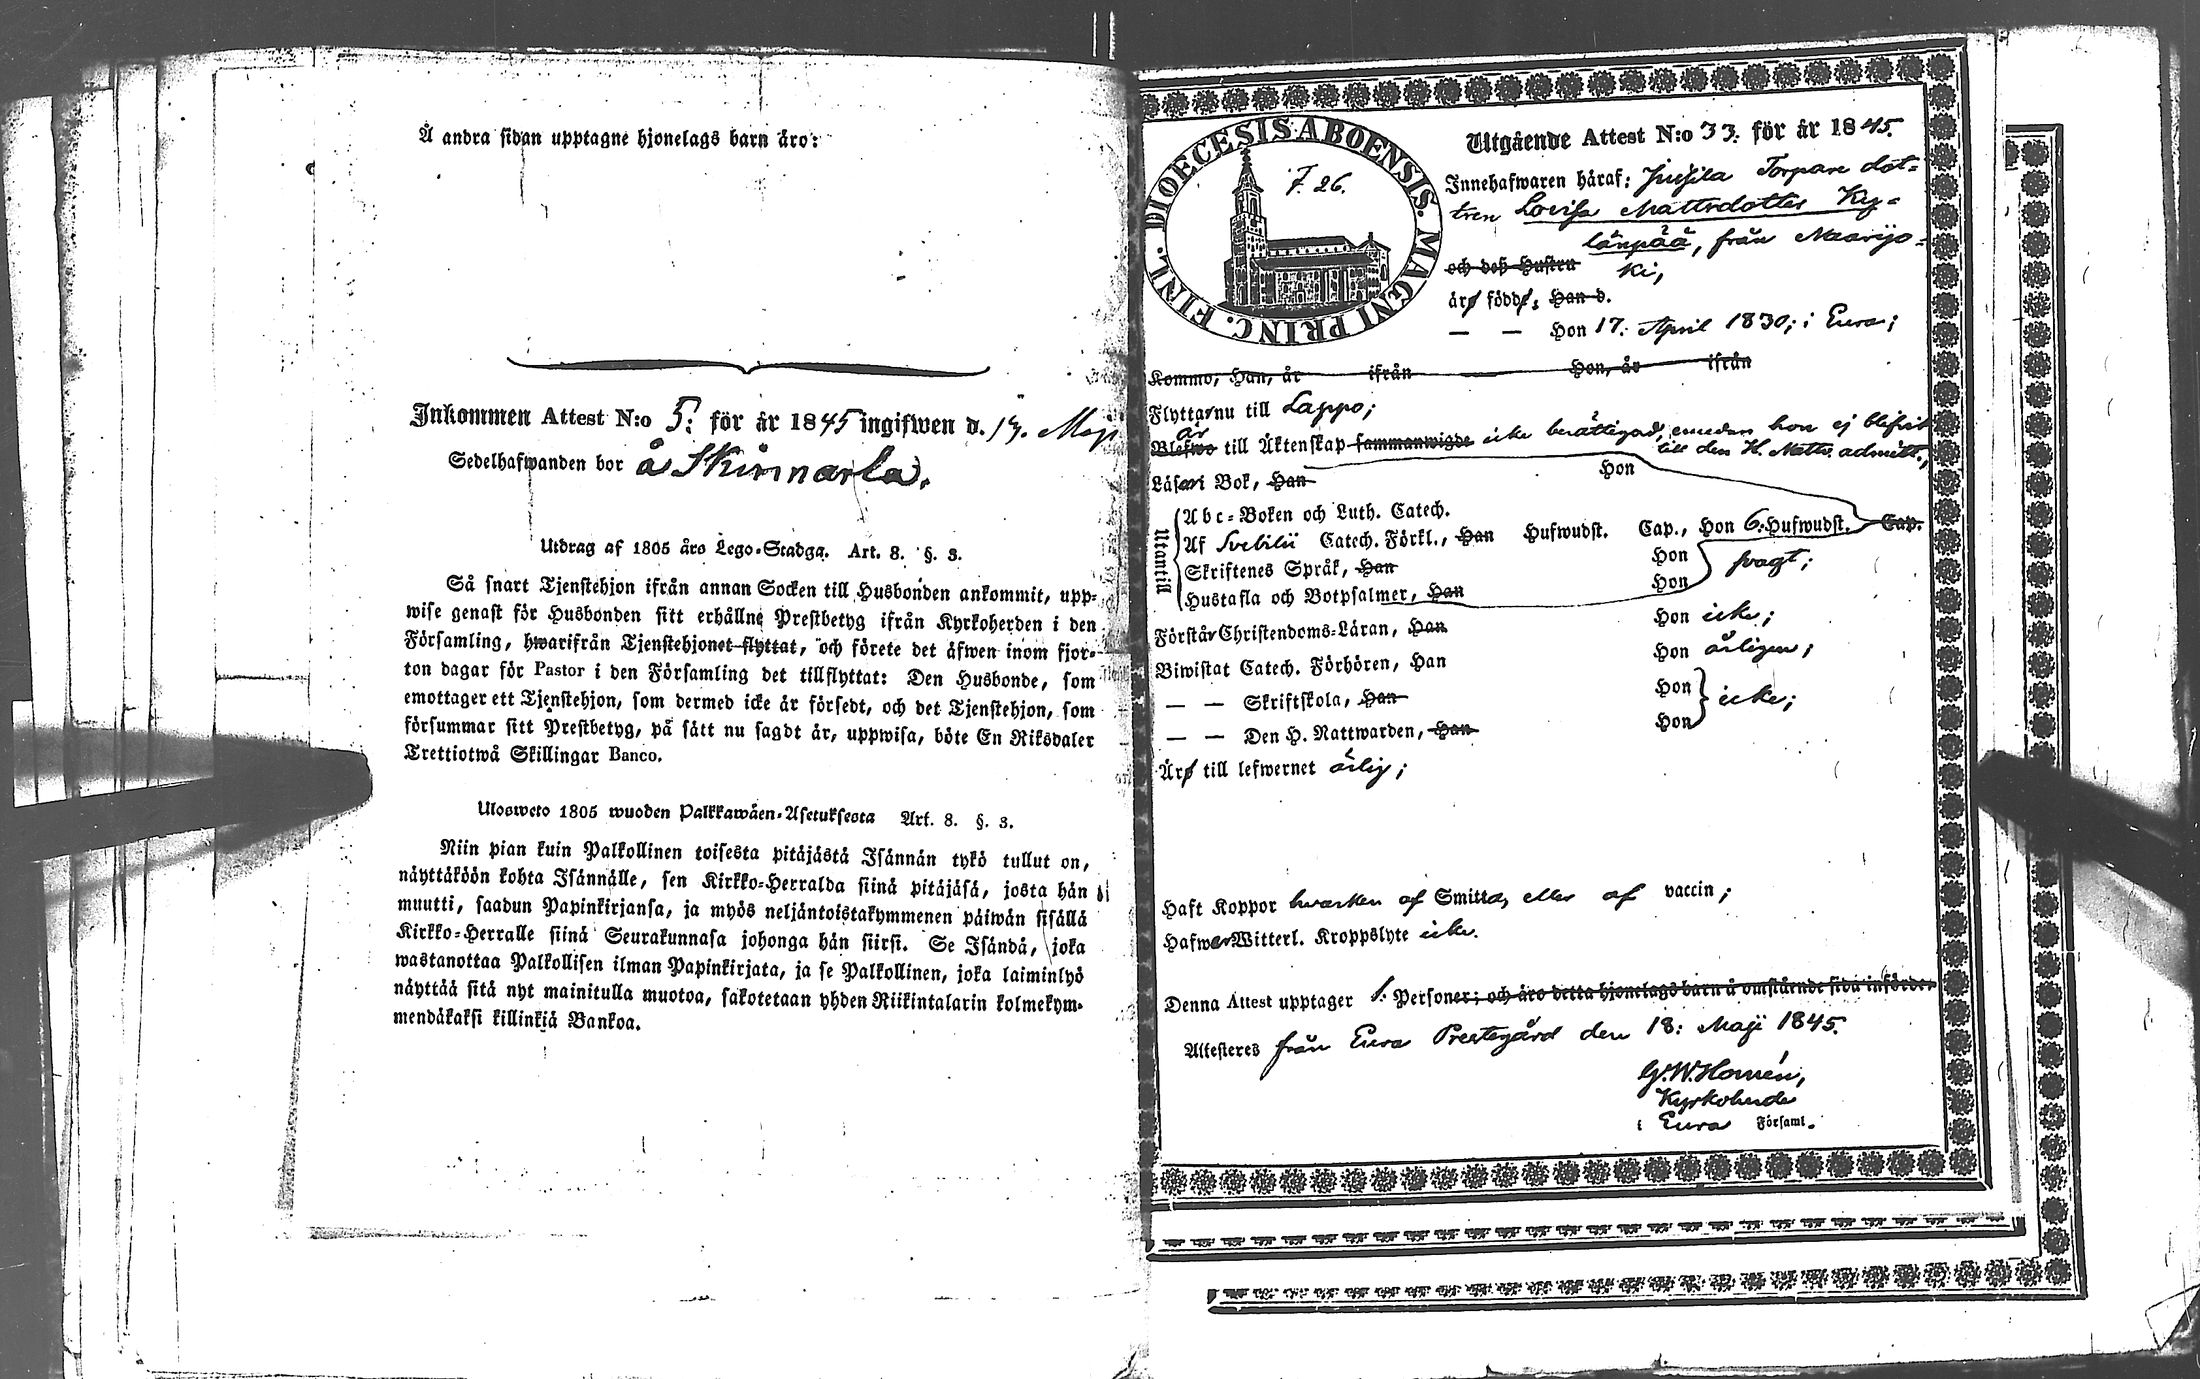 Å andra sidan upptagne hjonelags barn äro:
Inkommen Attest N:o 5: för år 1845 ingifwen d. 19. Maji
Sedelhafwanden bor å Skinnarla.
Utdrag af 1805 års Lego-Stadga. Art. 8. §. 3.
Så snart Tjenstehjon ifrån annan Socken till Husbonden ankommit, upp-
wise genast för Husbonden sitt erhållne Prestbetyg ifrån Kyrkoherden i den
Församling, hwarifrån Tjenstehjonet flyttat, och förete det äfwen inom fjor-
ton dagar för Pastor i den Församling det tillflyttat: Den Husbonde, som
emottager ett Tjenstehjon, som dermed icke är försedt, och det Tjenstehjon, som
försummar sitt Prestbetyg, på sätt nu sagdt är, uppwisa, böte En Riksdaler
Trettiotwå Skillingar Banco.
Ulosweto 1805 wuoden Palkkawäen-Asetuksesta Art. 8. §. 3.
Niin pian kuin Palkollinen toisesta pitäjästä Isännän tykö tullut on,
näyttäköön kohta Isännälle, sen Kirkko-Herralda siinä pitäjäsä, josta hän
muutti, saadun Papinkirjansa, ja myös neljäntoistakymmenen päiwän sisällä
Kirkko-Herralle siinä Seurakunnasa johonga hän siirsi. Se Isändä, joka
wastanottaa Palkollisen ilman Papinkirjata, ja se Palkollinen, joka laiminlyö
näyttää sitä nyt mainitulla muotoa, sakotetaan yhden Riikintalarin kolmekym-
mendäkaksi killinkiä Bankoa.
DIOECESIS ABOENSIS. MAGNI PRINC. FINL.
F. 26.
Utgående Attest N:o 33. för år 1845.
Innehafwaren häraf: Torpare dot-
tren Lovisa Mattsdotter Ky-
länpää, från Naarjo-
och deß Hustru ki,
äro födde, Han d.
— — Hon 17. April 1830; i Eura;
Kommo, Han, år ifrån Hon, år ifrån
Flytta nu till Lappo;
är
Blefwo till Äktenskap sammanwigde icke berättigad, emedan hon ej blifvit
till den H. Nattv. admitt.;
Läser i Bok, Han Hon
Utantill
Abc-Boken och Luth. Catech.
Af Svebilii Catech. Förkl., Han Hufwudst. Cap., Hon 6. Hufwudst. Cap.
Skriftenes Språk, Han Hon svagt;
Hustafla och Botpsalmer, Han Hon
Förstår Christendoms-Läran, Han Hon icke;
Biwistat Catech. Förhören, Han Hon årligen;
— — Skriftskola, Han Hon icke;
— — Den H. Nattwarden, Han Hon
Äro till lefwernet ärlig;
Haft Koppor hvarken af Smitta, eller af vaccin;
Hafwer Witterl. Kroppslyte icke.
Denna Attest upptager 1. Personer; och äro detta hjonelags barn å omstående sida införde.
Attesteres från Eura Prestegård den 18: Maji 1845.
G. W. Homén,
Kyrkoherde
i Eura Församl.